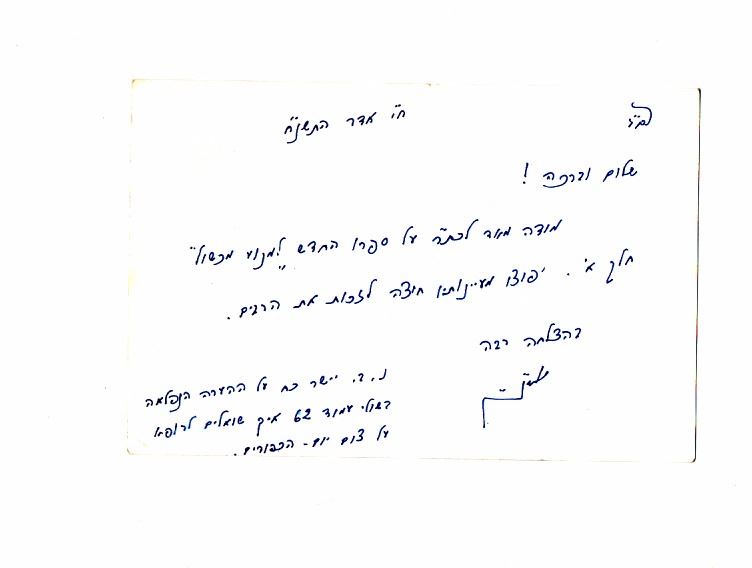 בס"ד
ח"י אדר התשנ"ח
שלום וברכה !
מודה מאוד לכת"ר על ספרו החדש "למנוע מכשול"
חלק א'. יפוצו מעיינותיו חוצה לזכות את הרבים.
בהצלחה רבה
נ.ב. יישר כח על ההערה הנפלאה
בשולי עמוד 62 איך שואלים לרופא
על צום יום-הכפורים.